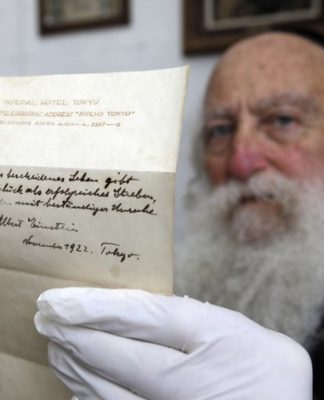 IMPERIAL HOTEL TOKYO
TELEGRAPHIC ADDRESS "IMPEHO TOKYO"
bescheidenes Leben gibt
Glück als erfolgreiches Streben,
mit beständiger Unruhe
Albert Einstein
November 1922. Tokyo.